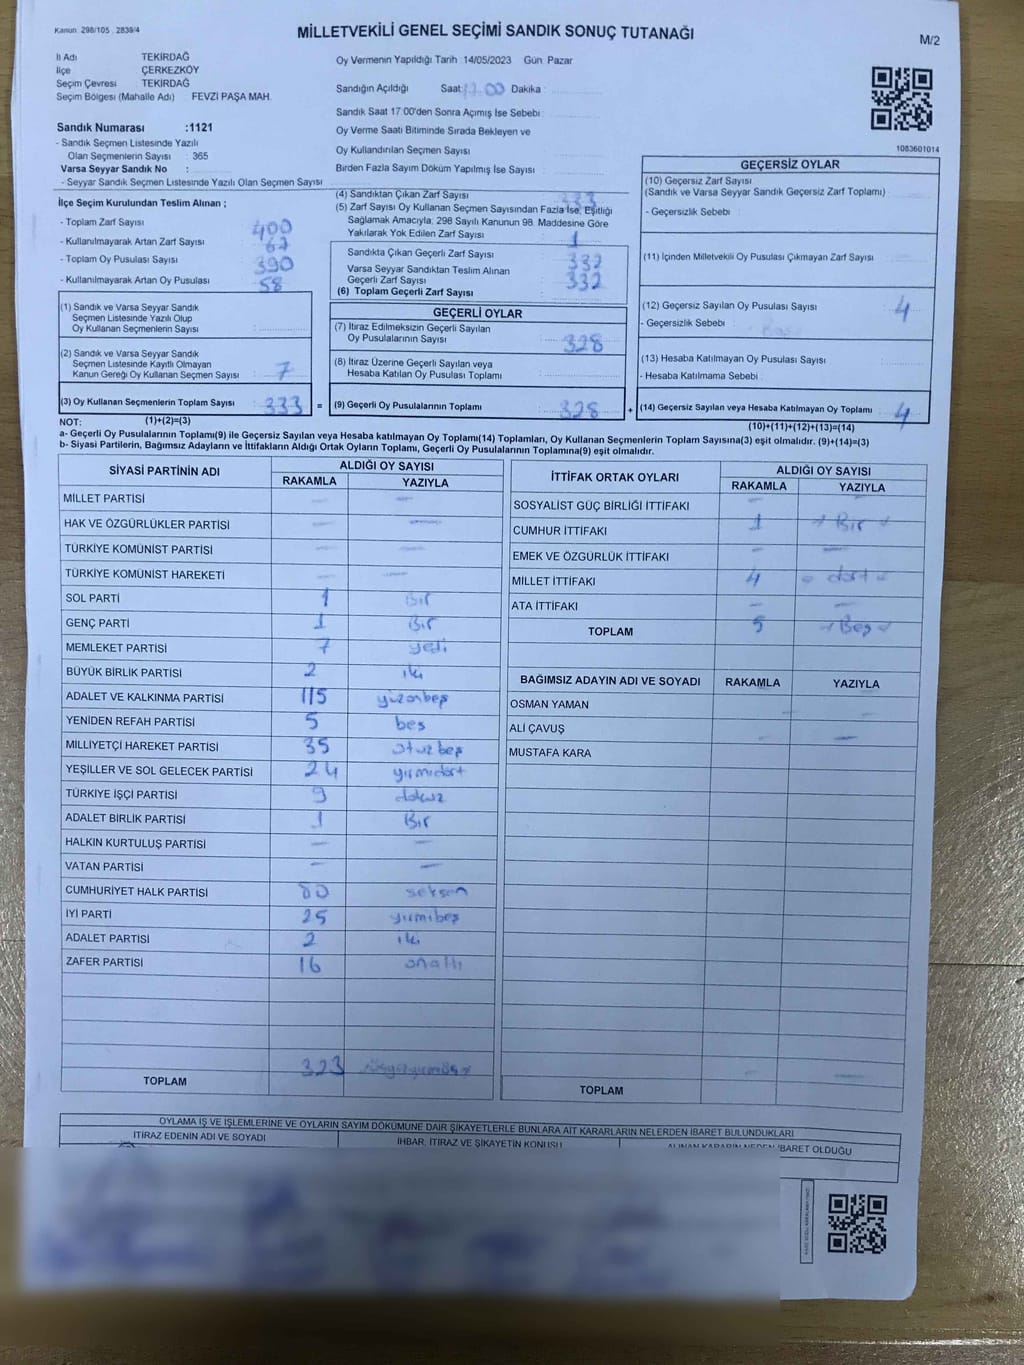 Kanun: 298/105 , 2839/4
MİLLETVEKİLİ GENEL SEÇİMİ SANDIK SONUÇ TUTANAĞI
M/2
İl Adı TEKİRDAĞ
İlçe ÇERKEZKÖY
Seçim Çevresi TEKİRDAĞ
Seçim Bölgesi (Mahalle Adı) : FEVZİ PAŞA MAH.
Oy Vermenin Yapıldığı Tarih :14/05/2023 Gün: Pazar
Sandığın Açıldığı Saat: 17.00 Dakika :
Sandık Saat 17:00'den Sonra Açımış İse Sebebi :
Oy Verme Saati Bitiminde Sırada Bekleyen ve
Oy Kullandırılan Seçmen Sayısı :
Birden Fazla Sayım Döküm Yapılmış İse Sayısı :
1083601014
Sandık Numarası :1121
- Sandık Seçmen Listesinde Yazılı
Olan Seçmenlerin Sayısı : 365
Varsa Seyyar Sandık No :
- Seyyar Sandık Seçmen Listesinde Yazılı Olan Seçmen Sayısı :
İlçe Seçim Kurulundan Teslim Alınan ;
- Toplam Zarf Sayısı : 400
- Kullanılmayarak Artan Zarf Sayısı : 67
- Toplam Oy Pusulası Sayısı : 390
- Kullanılmayarak Artan Oy Pusulası : 58
(1) Sandık ve Varsa Seyyar Sandık
Seçmen Listesinde Yazılı Olup
Oy Kullanan Seçmenlerin Sayısı :
(2) Sandık ve Varsa Seyyar Sandık
Seçmen Listesinde Kayıtlı Olmayan
Kanun Gereği Oy Kullanan Seçmen Sayısı : 7
(3) Oy Kullanan Seçmenlerin Toplam Sayısı : 333 =
(4) Sandıktan Çıkan Zarf Sayısı : 333
(5) Zarf Sayısı Oy Kullanan Seçmen Sayısından Fazla İse, Eşitliği
Sağlamak Amacıyla; 298 Sayılı Kanunun 98. Maddesine Göre
Yakılarak Yok Edilen Zarf Sayısı : 1
Sandıkta Çıkan Geçerli Zarf Sayısı : 332
Varsa Seyyar Sandıktan Teslim Alınan
Geçerli Zarf Sayısı : 332
(6) Toplam Geçerli Zarf Sayısı :
GEÇERLİ OYLAR
(7) İtiraz Edilmeksizin Geçerli Sayılan
Oy Pusulalarının Sayısı : 328
(8) İtiraz Üzerine Geçerli Sayılan veya
Hesaba Katılan Oy Pusulası Toplamı :
(9) Geçerli Oy Pusulalarının Toplamı : 328 +
GEÇERSİZ OYLAR
(10) Geçersiz Zarf Sayısı
(Sandık ve Varsa Seyyar Sandık Geçersiz Zarf Toplamı) :
- Geçersizlik Sebebi :
(11) İçinden Milletvekili Oy Pusulası Çıkmayan Zarf Sayısı :
(12) Geçersiz Sayılan Oy Pusulası Sayısı : 4
- Geçersizlik Sebebi :
(13) Hesaba Katılmayan Oy Pusulası Sayısı :
- Hesaba Katılmama Sebebi :
(14) Geçersiz Sayılan veya Hesaba Katılmayan Oy Toplamı : 4
NOT: (1)+(2)=(3) (10)+(11)+(12)+(13)=(14)
a- Geçerli Oy Pusulalarının Toplamı(9) ile Geçersiz Sayılan veya Hesaba katılmayan Oy Toplamı(14) Toplamları, Oy Kullanan Seçmenlerin Toplam Sayısına(3) eşit olmalıdır. (9)+(14)=(3)
b- Siyasi Partilerin, Bağımsız Adayların ve İttifakların Aldığı Ortak Oyların Toplamı, Geçerli Oy Pusulalarının Toplamına(9) eşit olmalıdır.
SİYASİ PARTİNİN ADI ALDIĞI OY SAYISI
RAKAMLA YAZIYLA
MİLLET PARTİSİ — —
HAK VE ÖZGÜRLÜKLER PARTİSİ — —
TÜRKİYE KOMÜNİST PARTİSİ — —
TÜRKİYE KOMÜNİST HAREKETİ — —
SOL PARTİ 1 Bir
GENÇ PARTİ 1 Bir
MEMLEKET PARTİSİ 7 yedi
BÜYÜK BİRLİK PARTİSİ 2 iki
ADALET VE KALKINMA PARTİSİ 115 yüzonbeş
YENİDEN REFAH PARTİSİ 5 beş
MİLLİYETÇİ HAREKET PARTİSİ 35 otuzbeş
YEŞİLLER VE SOL GELECEK PARTİSİ 24 yirmidört
TÜRKİYE İŞÇİ PARTİSİ 9 dokuz
ADALET BİRLİK PARTİSİ 1 Bir
HALKIN KURTULUŞ PARTİSİ — —
VATAN PARTİSİ — —
CUMHURİYET HALK PARTİSİ 80 seksen
İYİ PARTİ 25 yirmibeş
ADALET PARTİSİ 2 iki
ZAFER PARTİSİ 16 onaltı
TOPLAM 323 üçyüzyirmiüç
İTTİFAK ORTAK OYLARI ALDIĞI OY SAYISI
RAKAMLA YAZIYLA
SOSYALİST GÜÇ BİRLİĞİ İTTİFAKI — —
CUMHUR İTTİFAKI 1 Bir
EMEK VE ÖZGÜRLÜK İTTİFAKI — —
MİLLET İTTİFAKI 4 dört
ATA İTTİFAKI — —
TOPLAM 5 Beş
BAĞIMSIZ ADAYIN ADI VE SOYADI RAKAMLA YAZIYLA
OSMAN YAMAN — —
ALİ ÇAVUŞ — —
MUSTAFA KARA
TOPLAM — —
OYLAMA İŞ VE İŞLEMLERİNE VE OYLARIN SAYIM DÖKÜMÜNE DAİR ŞİKAYETLERLE BUNLARA AİT KARARLARIN NELERDEN İBARET BULUNDUKLARI
İTİRAZ EDENİN ADI VE SOYADI İHBAR, İTİRAZ VE ŞİKAYETİN KONUSU ALINAN KARARIN NEDEN İBARET OLDUĞU